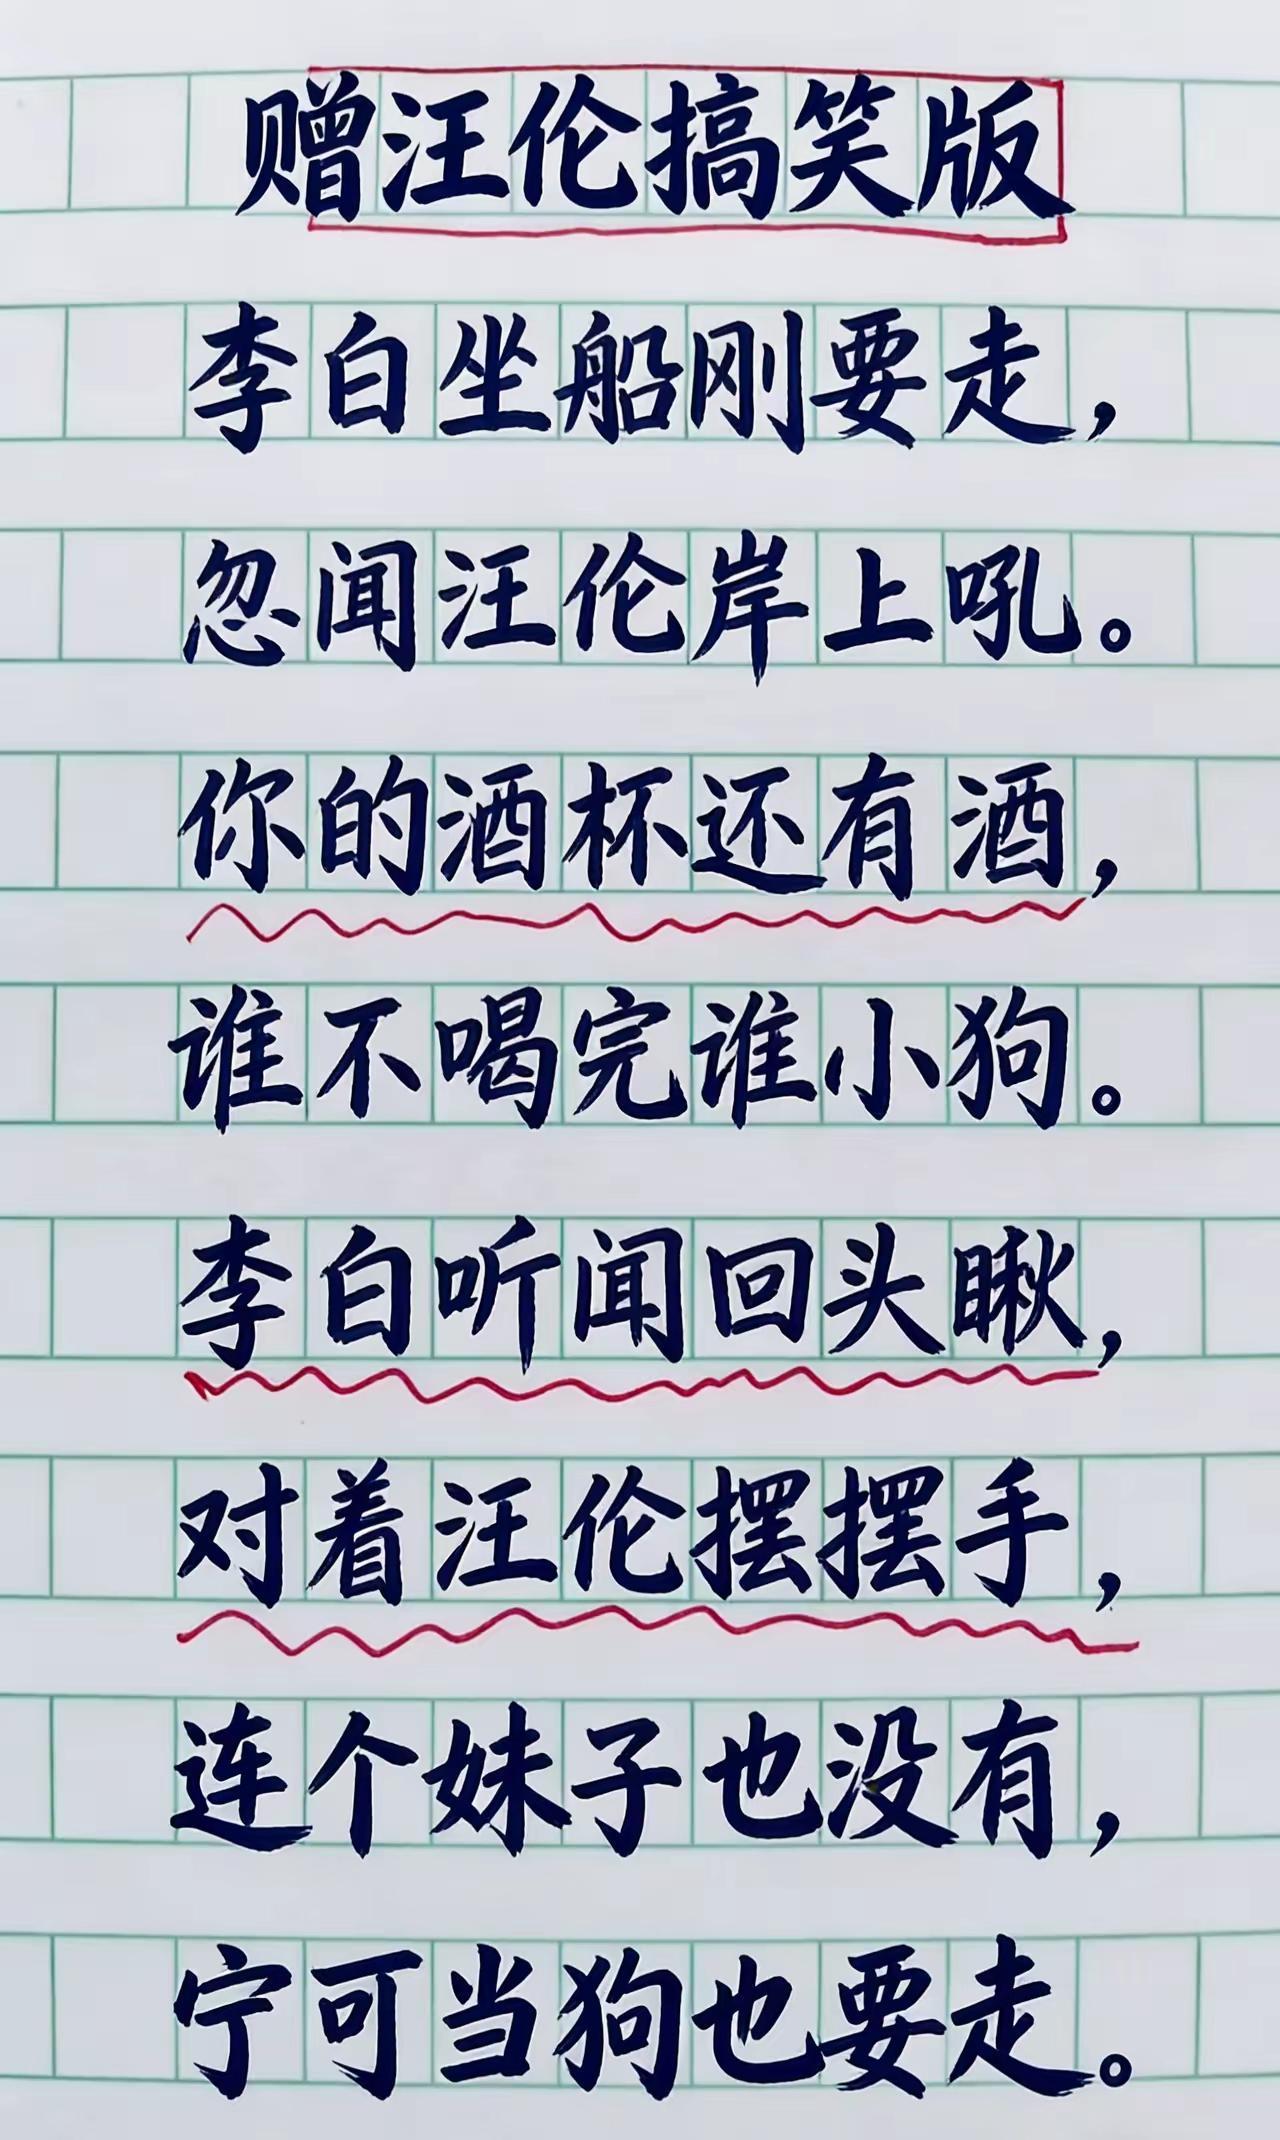 赠汪伦搞笑版
李白坐船刚要走，
忽闻汪伦岸上吼。
你的酒杯还有酒，
谁不喝完谁小狗。
李白听闻回头瞅，
对着汪伦摆摆手，
连个妹子也没有，
宁可当狗也要走。